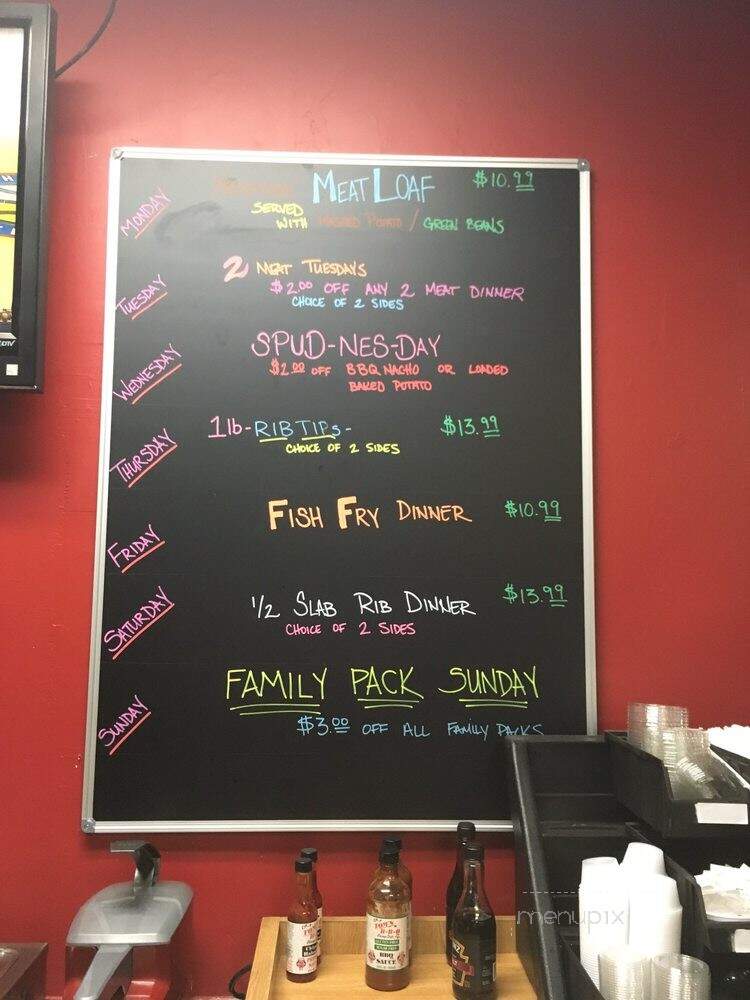 MONDAY
MEAT LOAF $10.99
SERVED
WITH MASHED POTATO / GREEN BEANS
TUESDAY
2 MEAT TUESDAYS
$2.00 OFF ANY 2 MEAT DINNER
CHOICE OF 2 SIDES
WEDNESDAY
SPUD-NES-DAY
$2.00 OFF BBQ NACHO OR LOADED
BAKED POTATO
THURSDAY
1lb-RIB TIPS- $13.99
CHOICE OF 2 SIDES
FRIDAY
FISH FRY DINNER $10.99
SATURDAY
1/2 SLAB RIB DINNER $13.99
CHOICE OF 2 SIDES
SUNDAY
FAMILY PACK SUNDAY
$3.00 OFF ALL FAMILY PACKS
BBQ
SAUCE
menupix